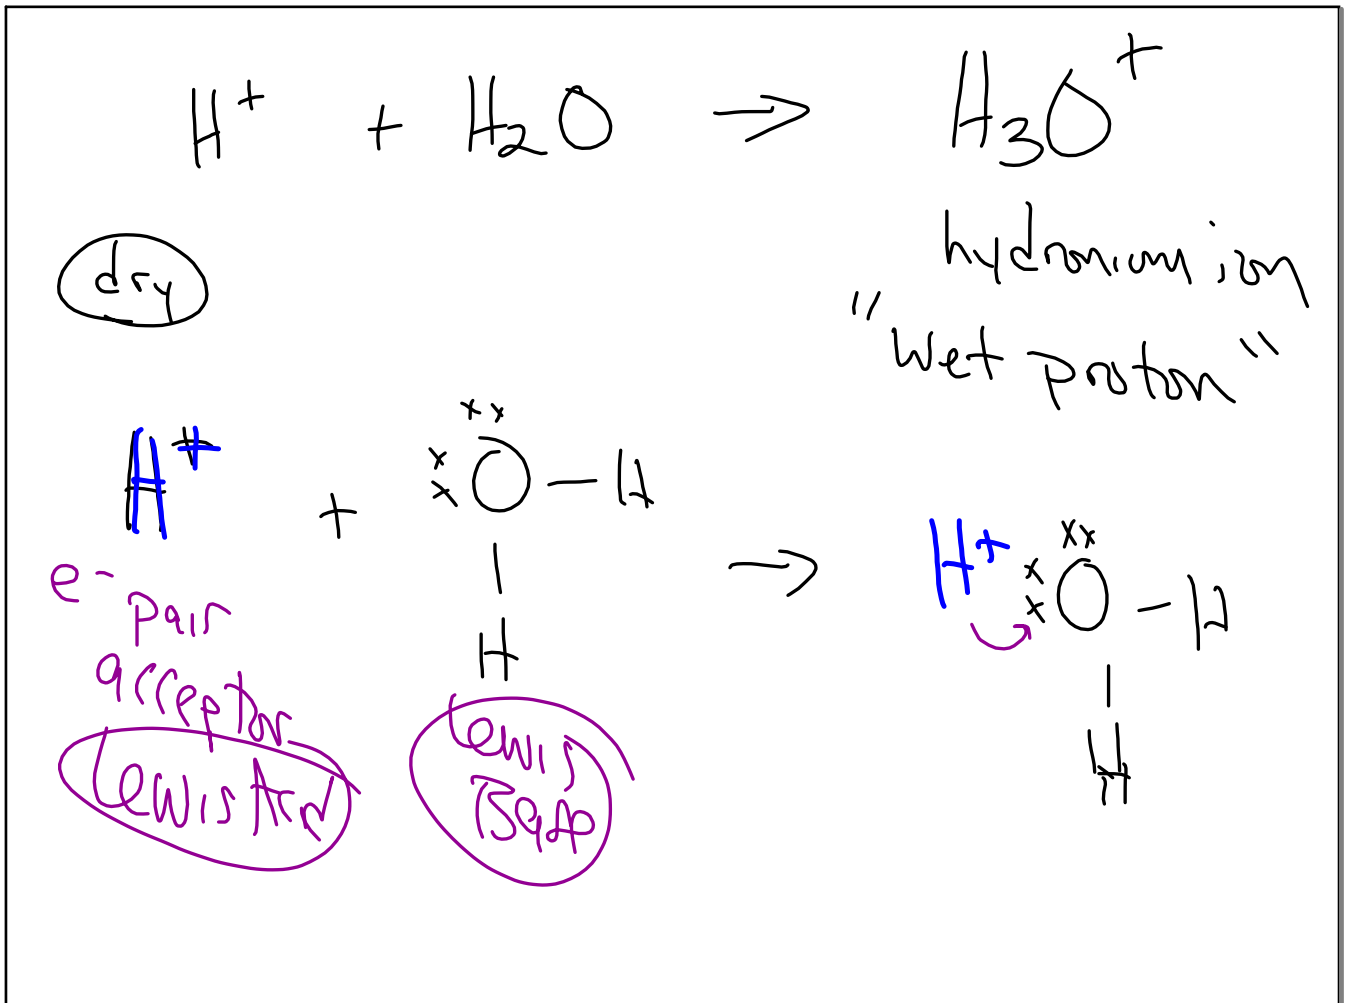 H⁺ + H₂O → H₃O⁺
hydronium ion
dry
"wet proton"
H⁺ + xx xx O – H
|
H
→ H⁺ xx xx O – H
|
H
e⁻
pair
acceptor
Lewis Acid
Lewis
Base